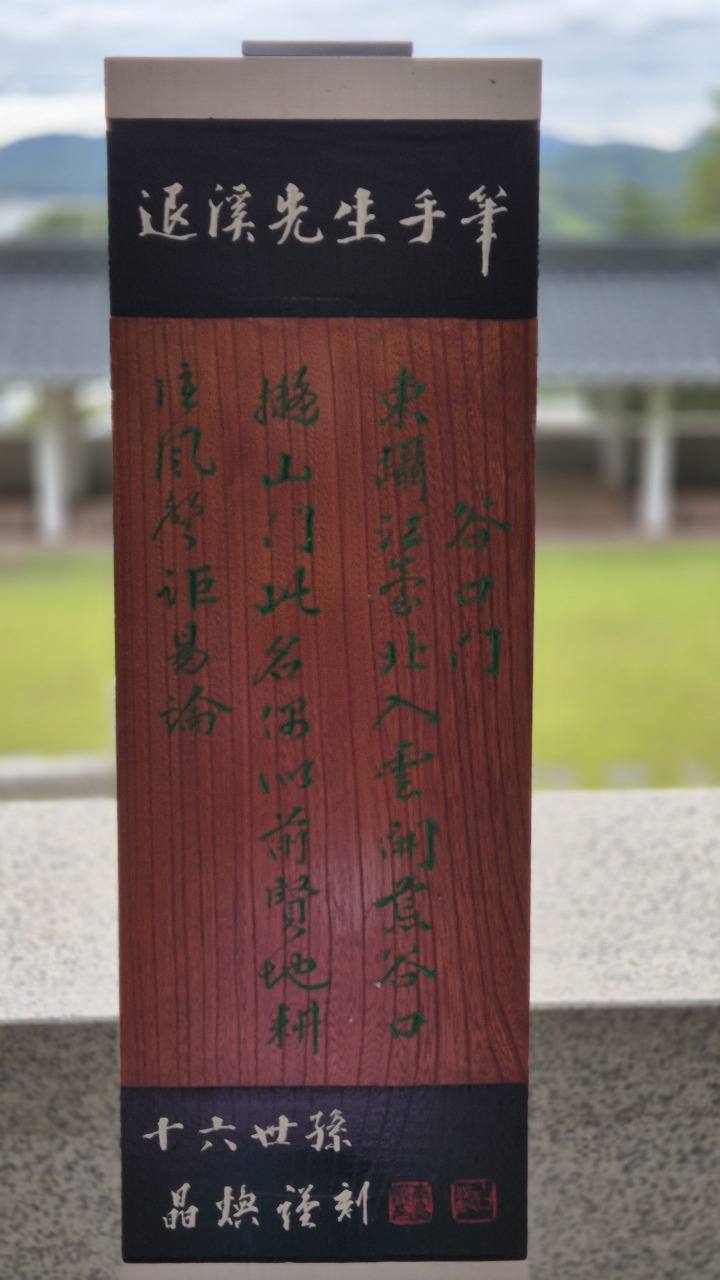 退溪先生手筆
谷口門
東躡江臺北入雲開荒谷口
擬山門此名偶似前賢地耕
隱風聲詎易論
十六世孫
晶煥謹刻